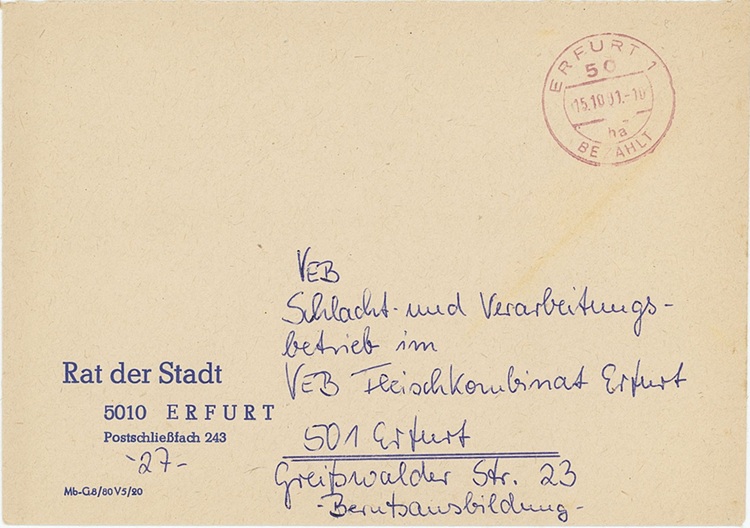 ERFURT 1
50
15.10 91.-10
ha
BEZAHLT
VEB
Schlacht- und Verarbeitungs-
betrieb im
VEB Fleischkombinat Erfurt
501 Erfurt
Greißwalder Str. 23
-Berufsausbildung-
Rat der Stadt
5010 ERFURT
Postschließfach 243
-27-
Mb-G.8/80 V5/20